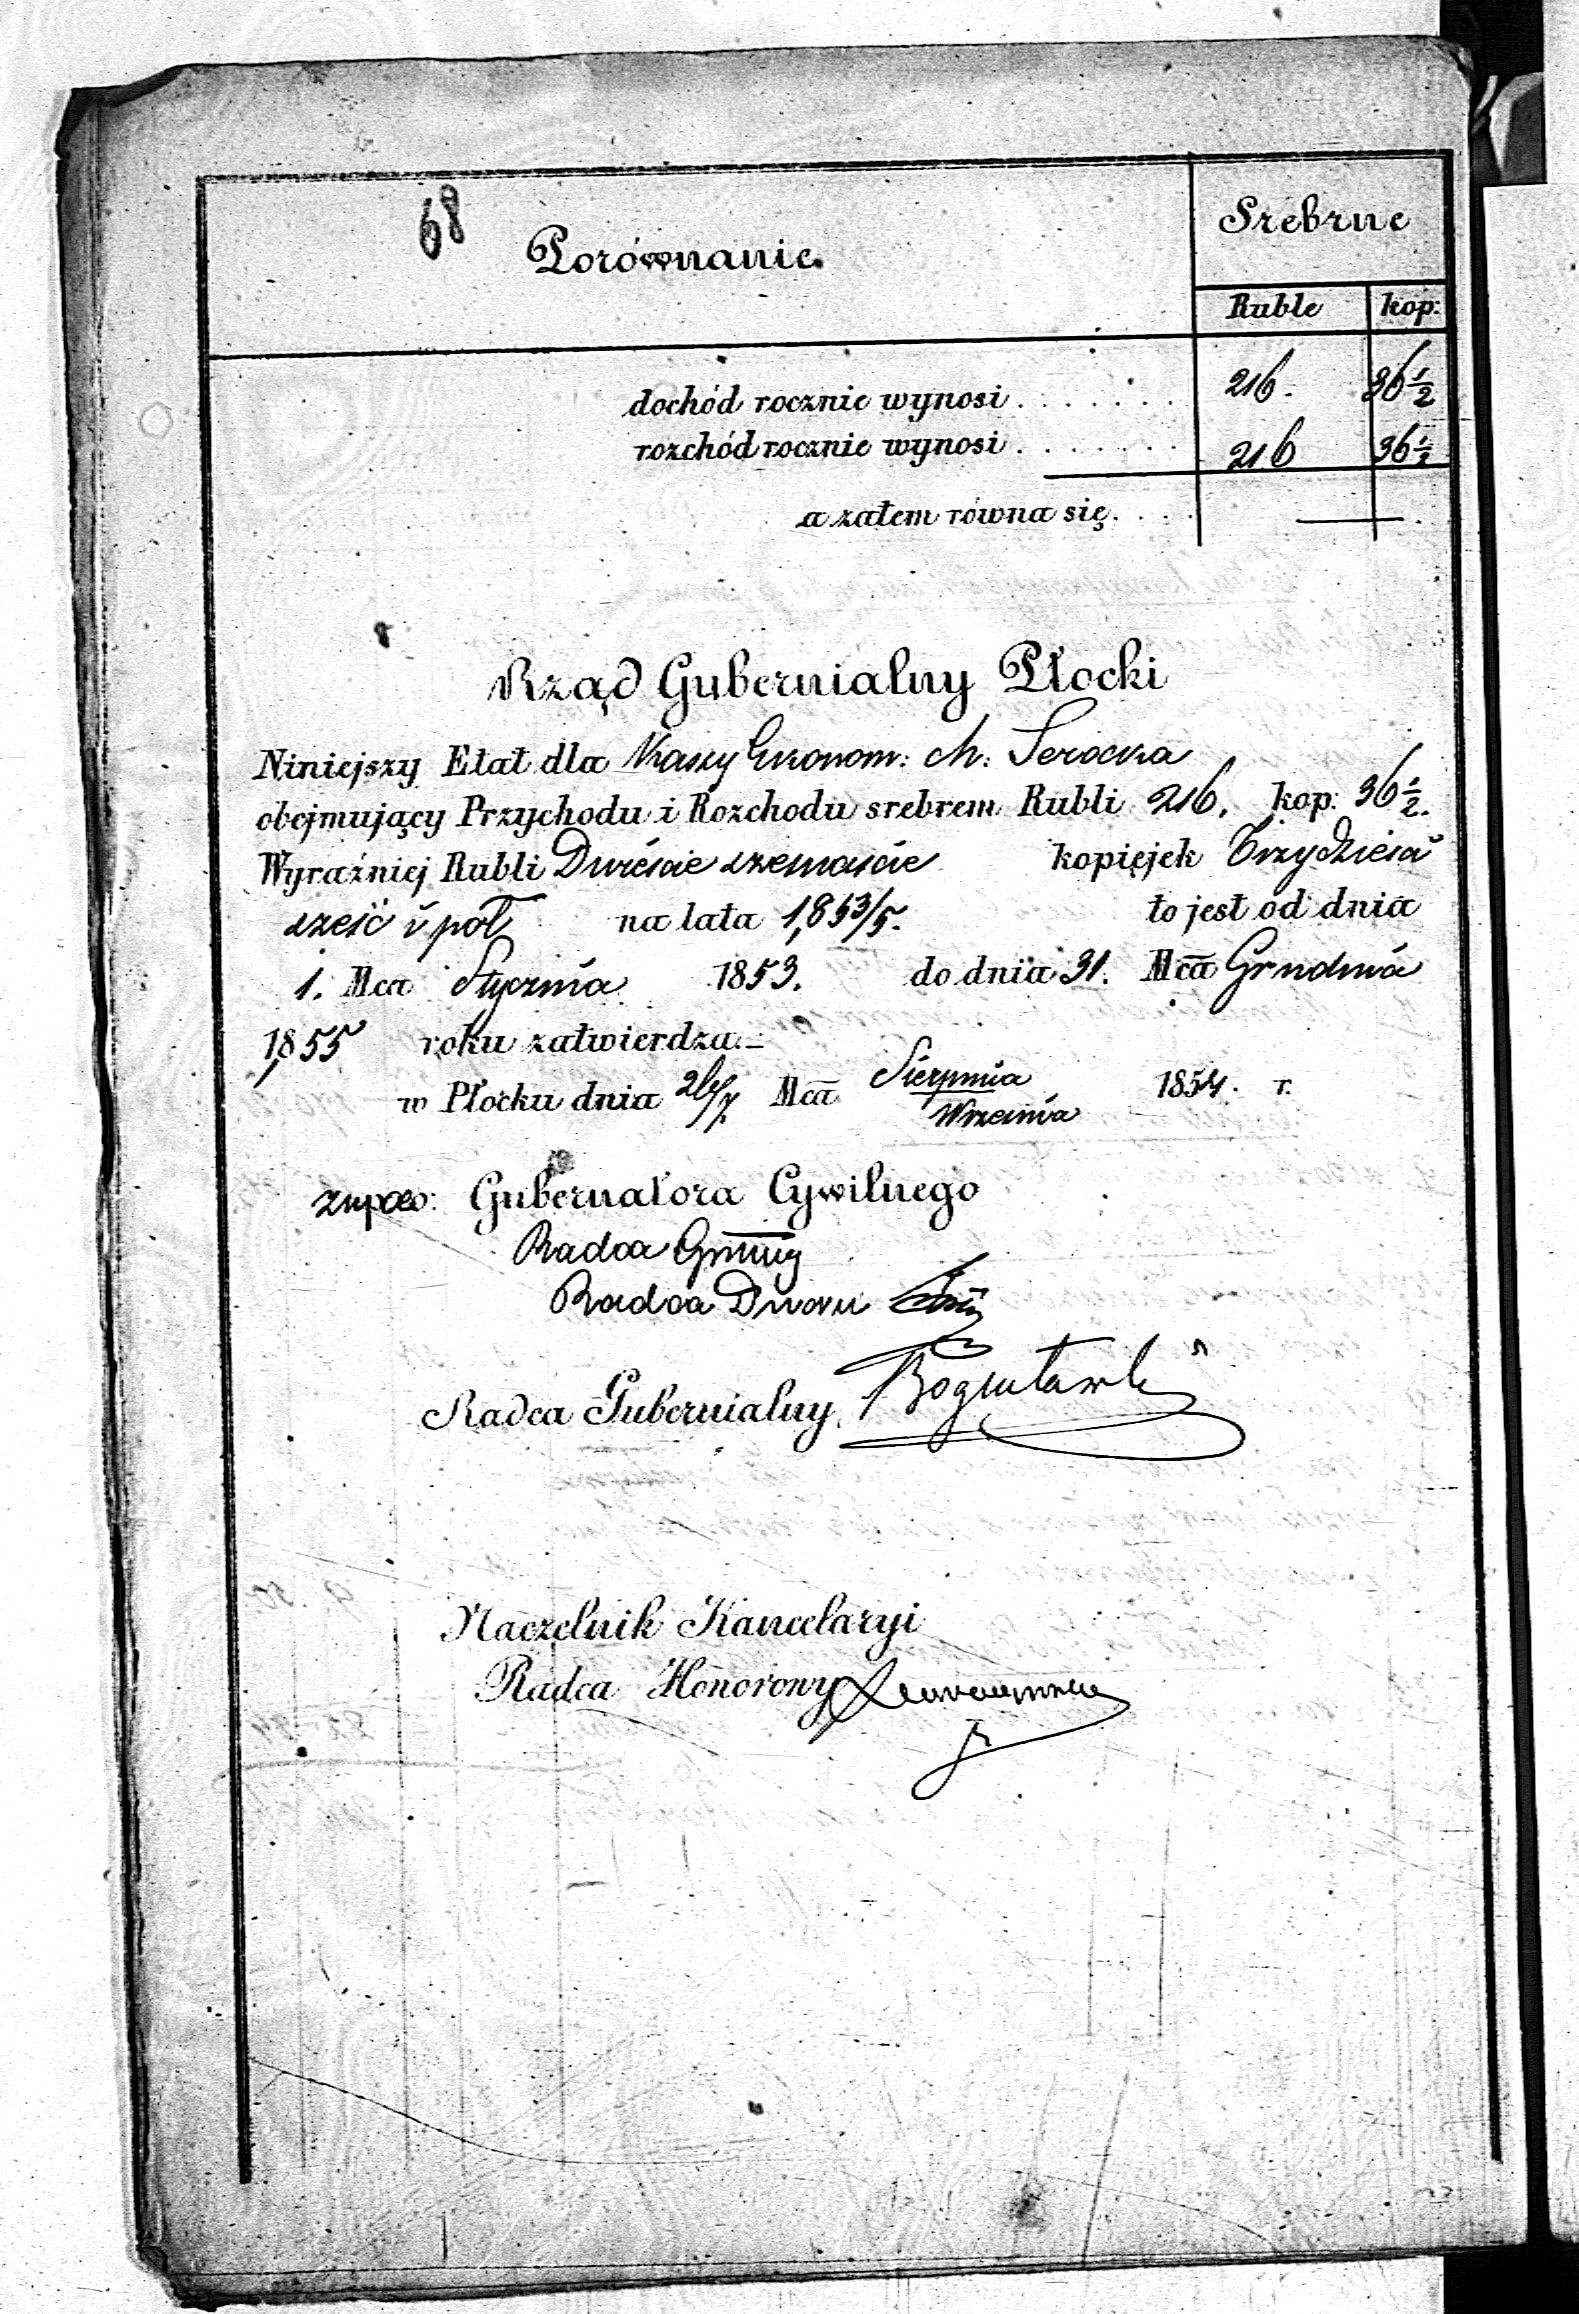 68
Porównanie.
Srebrne
Ruble kop:
dochód rocznie wynosi . . . . . . . 216. 36 1/2
rozchód rocznie wynosi . . . . . . . 216 36 1/2
a zatem równa się. . . . —
Rząd Gubernialny Płocki
Niniejszy Etat dla Kassy Ekonom: M: Serocka
obejmujący Przychodu i Rozchodu srebrem Rubli 216. kop: 36 1/2.
Wyraźniej Rubli Dwieście szesnaście kopiejek Trzydzieści
sześć i pół na lata 1853/5. to jest od dnia
1. Mca Stycznia 1853. do dnia 31. Mca Grudnia
1855 roku zatwierdza.—
w Płocku dnia 26/7 Mca Sierpnia/Września 1854. r.
Gubernatora Cywilnego
Radca
Radca Dworu
Radca Gubernialny Bogusławski
Naczelnik Kancelaryi
Radca Honorowy